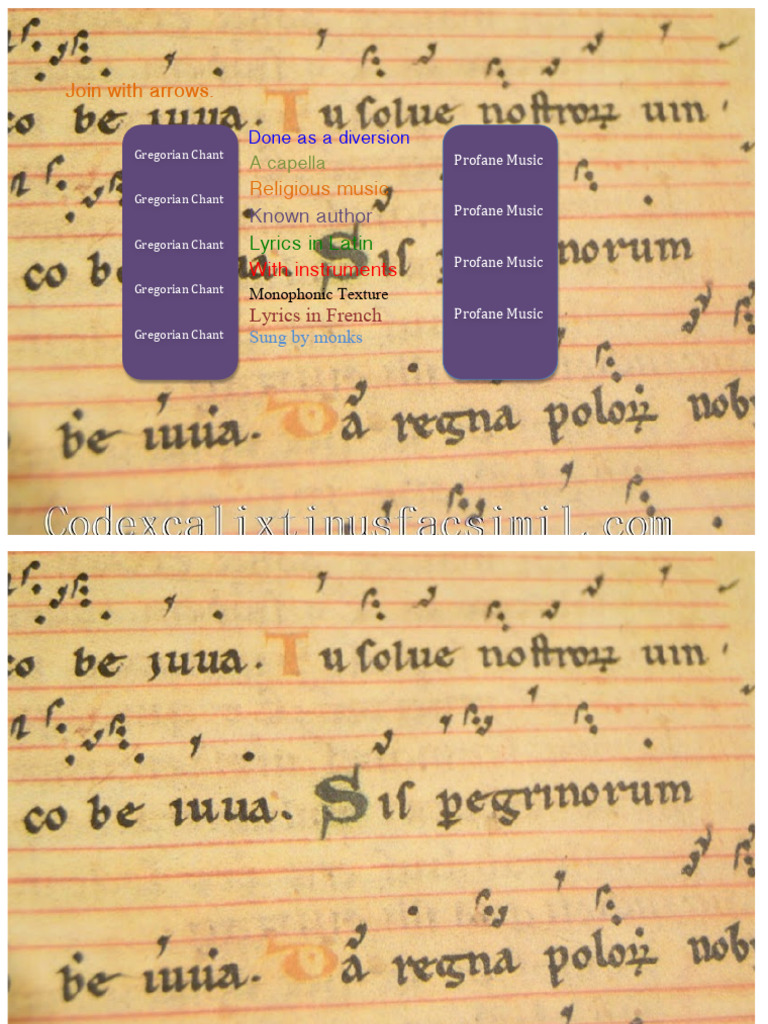 Join with arrows.
co be iuua. Tu solue nostrorum um
Gregorian Chant
Gregorian Chant
Gregorian Chant
Gregorian Chant
Gregorian Chant
Done as a diversion
A capella
Religious music
Known author
Lyrics in Latin
With instruments
Monophonic Texture
Lyrics in French
Sung by monks
Profane Music
Profane Music
Profane Music
Profane Music
co be Sis norum
be iuuia. a regna polor nob
Codexcalixtinusfacsimil.com
co be iuua. Tu solue um
co be iuua. Sis pegrinorum
be iuuia. a regna nob